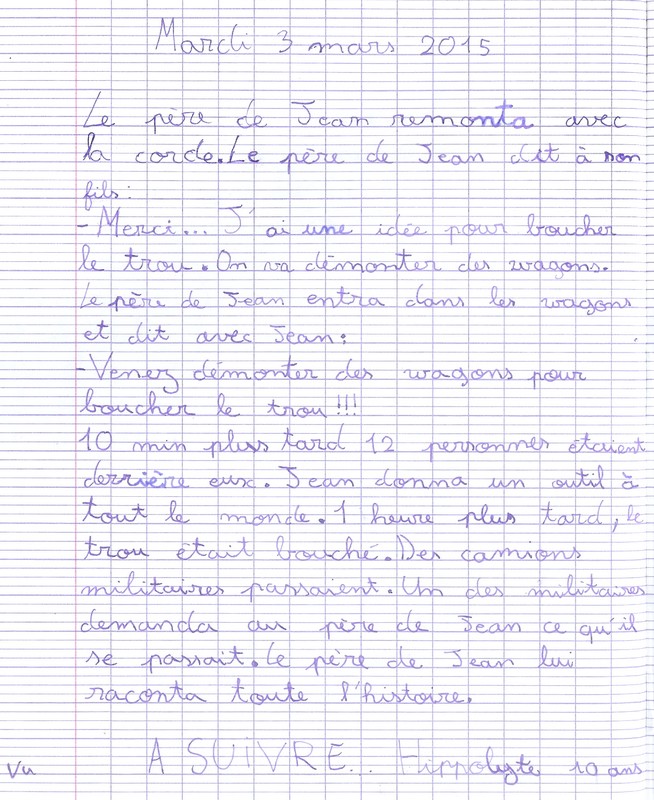 Mardi 3 mars 2015
Le père de Jean remonta avec
la corde. Le père de Jean dit à son
fils :
- Merci... J'ai une idée pour boucher
le trou. On va démonter des wagons.
Le père de Jean entra dans les wagons
et dit avec Jean :
- Venez démonter des wagons pour
boucher le trou !!!
10 min plus tard 12 personnes étaient
derrière eux. Jean donna un outil à
tout le monde. 1 heure plus tard, le
trou était bouché. Des camions
militaires passaient. Un des militaires
demanda au père de Jean ce qu'il
se passait. Le père de Jean lui
raconta toute l'histoire.
Vu A SUIVRE... Hippolyte 10 ans